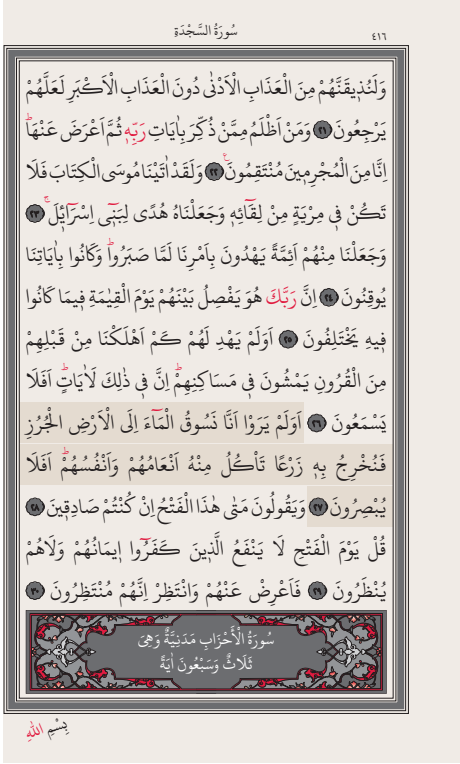 ٤١٦
سُورَةُ السَّجْدَةِ
وَلَنُذ۪يقَنَّهُمْ مِنَ الْعَذَابِ الْاَدْنٰى دُونَ الْعَذَابِ الْاَكْبَرِ لَعَلَّهُمْ
يَرْجِعُونَ ﴿٢١﴾ وَمَنْ اَظْلَمُ مِمَّنْ ذُكِّرَ بِاٰيَاتِ رَبِّه۪ ثُمَّ اَعْرَضَ عَنْهَاۜ
اِنَّا مِنَ الْمُجْرِم۪ينَ مُنْتَقِمُونَ۟ ﴿٢٢﴾ وَلَقَدْ اٰتَيْنَا مُوسَى الْكِتَابَ فَلَا
تَكُنْ ف۪ي مِرْيَةٍ مِنْ لِقَٓائِه۪ وَجَعَلْنَاهُ هُدًى لِبَن۪ٓي اِسْرَٓائ۪لَۚ ﴿٢٣﴾
وَجَعَلْنَا مِنْهُمْ اَئِمَّةً يَهْدُونَ بِاَمْرِنَا لَمَّا صَبَرُواۜ وَكَانُوا بِاٰيَاتِنَا
يُوقِنُونَ ﴿٢٤﴾ اِنَّ رَبَّكَ هُوَ يَفْصِلُ بَيْنَهُمْ يَوْمَ الْقِيٰمَةِ ف۪يمَا كَانُوا
ف۪يهِ يَخْتَلِفُونَ ﴿٢٥﴾ اَوَلَمْ يَهْدِ لَهُمْ كَمْ اَهْلَكْنَا مِنْ قَبْلِهِمْ
مِنَ الْقُرُونِ يَمْشُونَ ف۪ي مَسَاكِنِهِمْۜ اِنَّ ف۪ي ذٰلِكَ لَاٰيَاتٍۜ اَفَلَا
يَسْمَعُونَ ﴿٢٦﴾ اَوَلَمْ يَرَوْا اَنَّا نَسُوقُ الْمَٓاءَ اِلَى الْاَرْضِ الْجُرُزِ
فَنُخْرِجُ بِه۪ زَرْعًا تَأْكُلُ مِنْهُ اَنْعَامُهُمْ وَاَنْفُسُهُمْۜ اَفَلَا
يُبْصِرُونَ ﴿٢٧﴾ وَيَقُولُونَ مَتٰى هٰذَا الْفَتْحُ اِنْ كُنْتُمْ صَادِق۪ينَ ﴿٢٨﴾
قُلْ يَوْمَ الْفَتْحِ لَا يَنْفَعُ الَّذ۪ينَ كَفَرُٓوا ا۪يمَانُهُمْ وَلَاهُمْ
يُنْظَرُونَ ﴿٢٩﴾ فَاَعْرِضْ عَنْهُمْ وَانْتَظِرْ اِنَّهُمْ مُنْتَظِرُونَ ﴿٣٠﴾
سُورَةُ الْأَحْزَابِ مَدَنِيَّةٌ وَهِيَ
ثَلَاثٌ وَسَبْعُونَ اٰيَةً
بِسْمِ اللّٰهِ